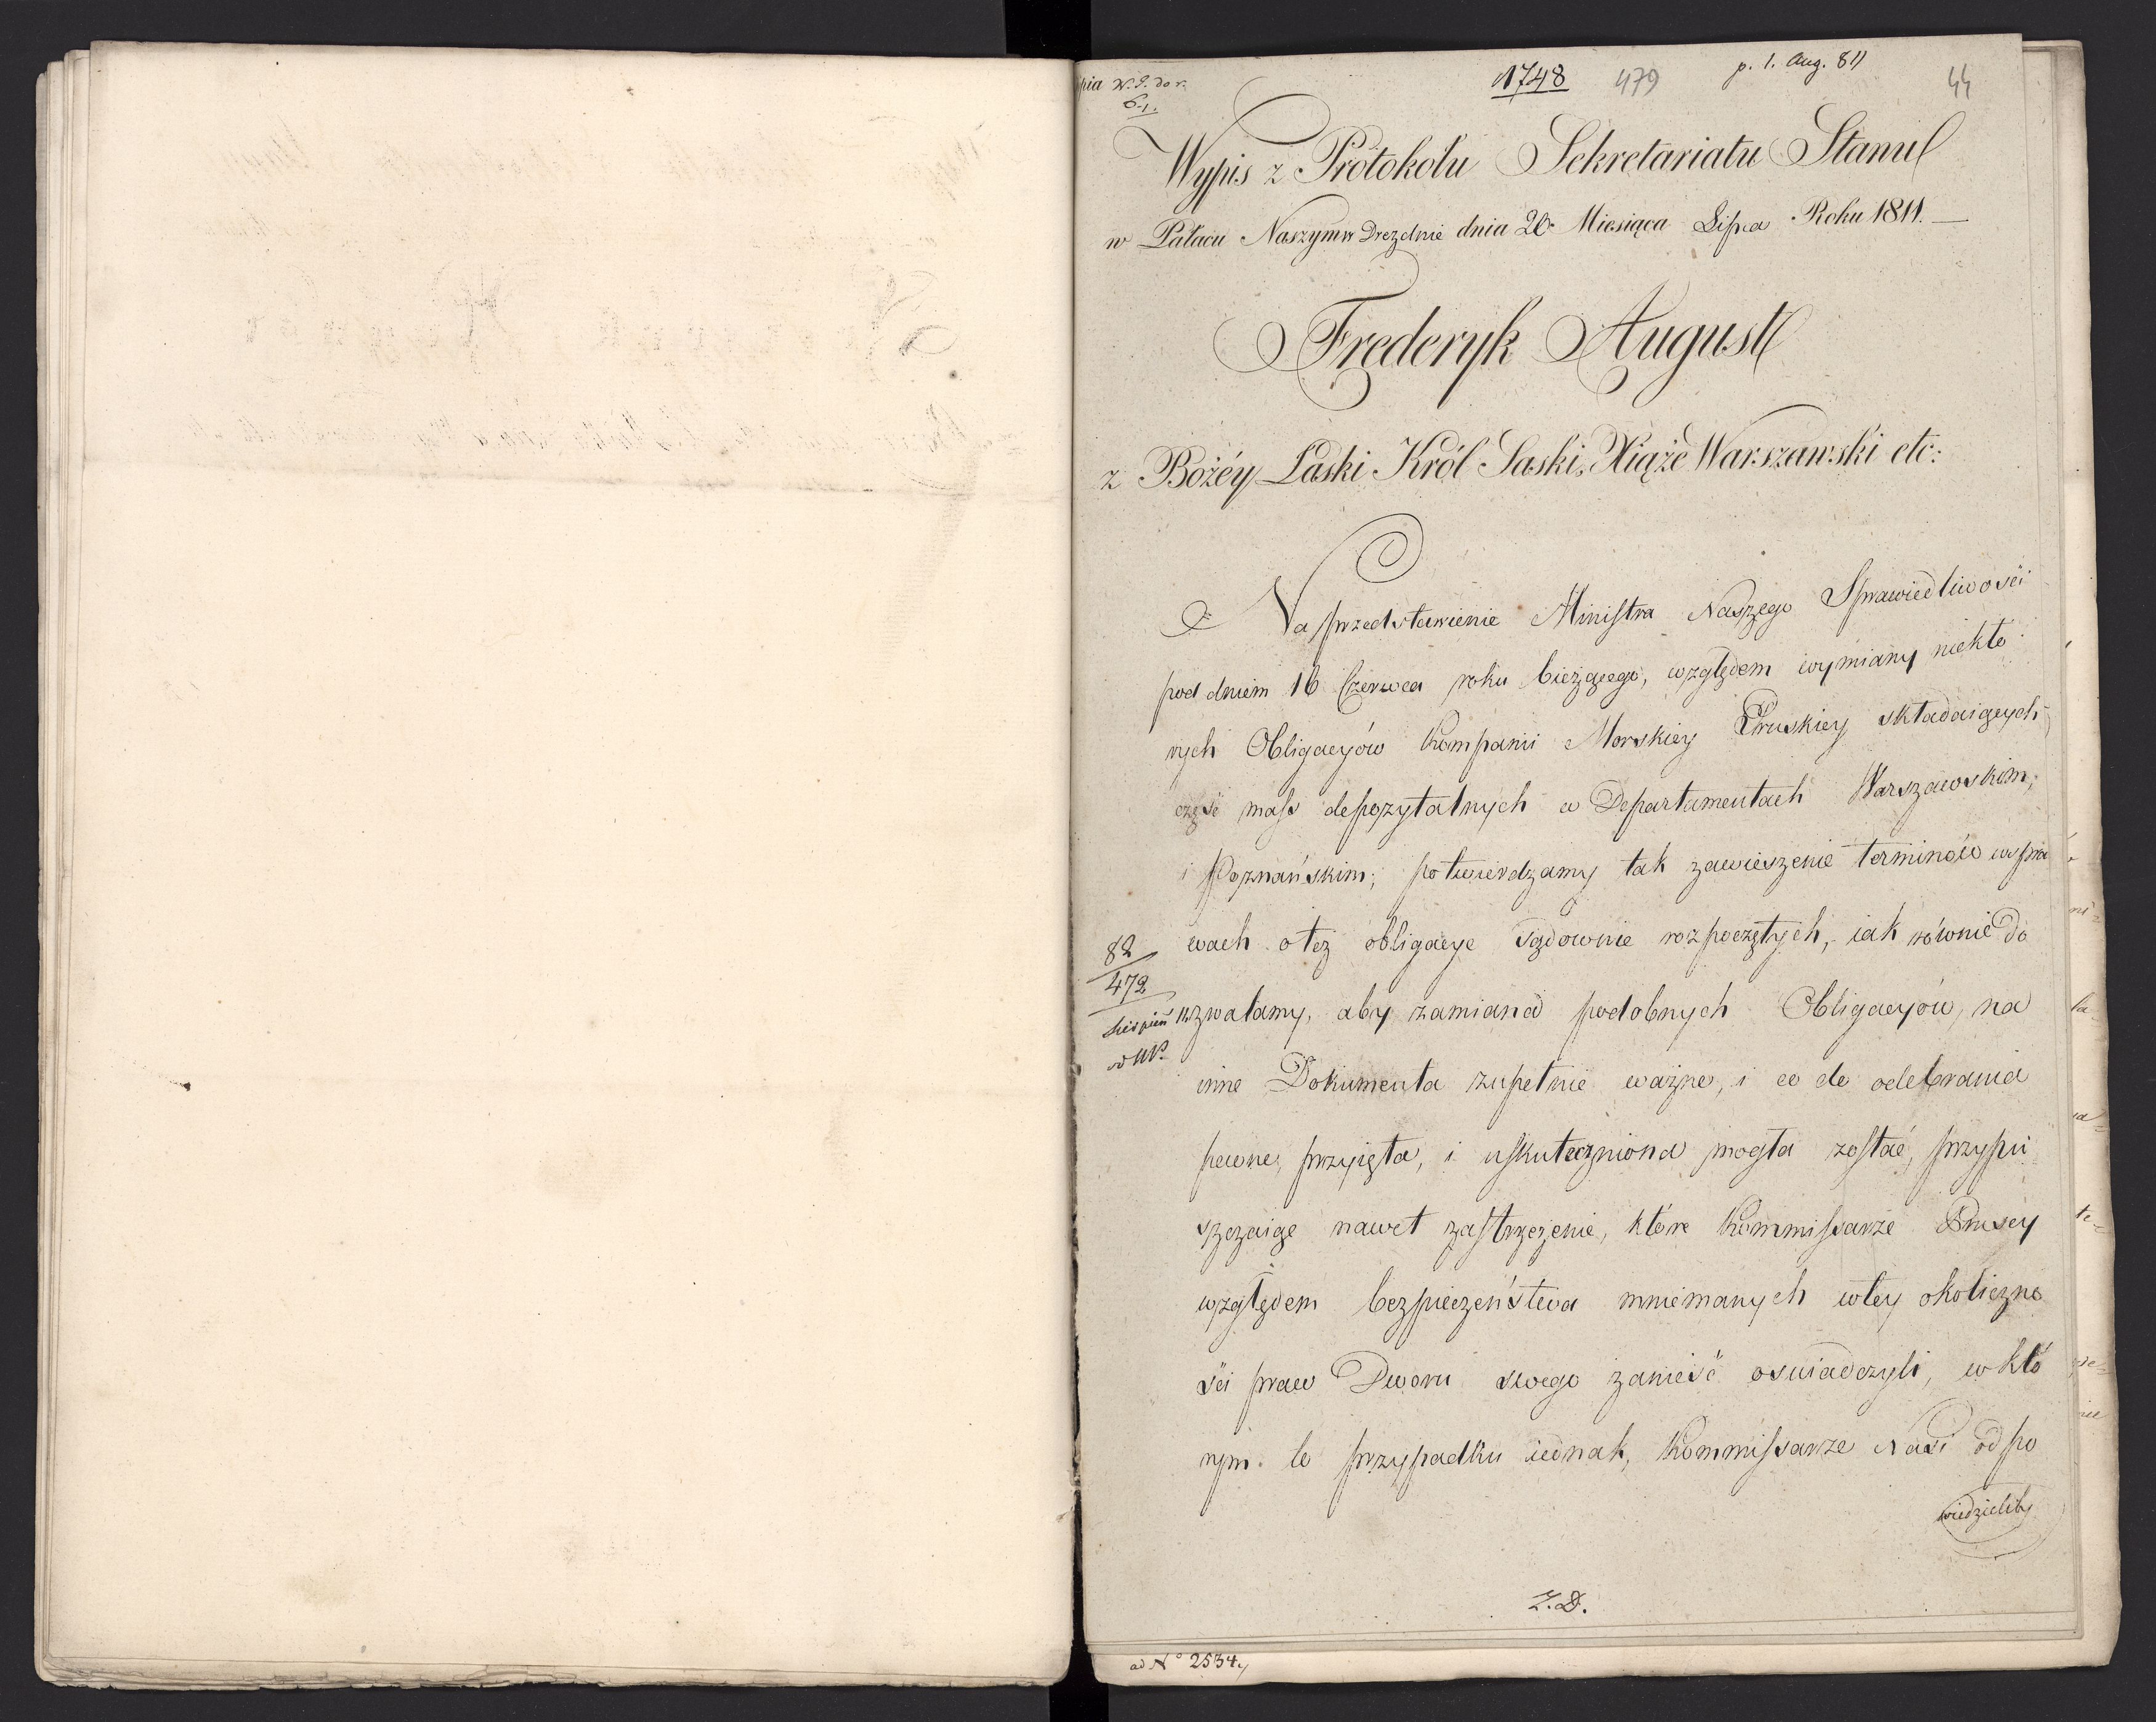 1748 479 p. 1. Aug. 811 44
Wypis z Protokołu Sekretariatu Stanu
w Pałacu Naszym w Dreznie dnia 20. Miesiąca Lipca Roku 1811.
Frederyk August
z Bożéy Łaski Król Saski, Xiąże Warszawski etc:
Na przedstawienie Ministra Naszego Sprawiedliwości
pod dniem 16 Czerwca roku bieżącego, względem wymiany niektó
rych Obligacyów Kompanii Morskiey Pruskiey składaiących
część mass depozytalnych w Departamentach Warszawskim,
i Poznańskim; potwierdzamy tak zawieszenie terminów w spra
wach o też obligacye sądownie rozpoczętych, iak równie do
zwalamy, aby zamiana podobnych Obligacyów, na
inne Dokumenta zupełnie ważne, i co do odebrania
pewne, przyięta, i uskuteczniona mogła zostać, przypu
szczaiąc nawet zastrzeżenie, które Kommissarze Pruscy
względem bezpieczeństwa mniemanych w tey okoliczno
ści praw Dworu swego zanieść oświadczyli, w któ
rym to przypadku iednak, Kommissarze Nasi odpo
wiedzieliby
82
472
Sierpień
Z.D.
ad N° 2534